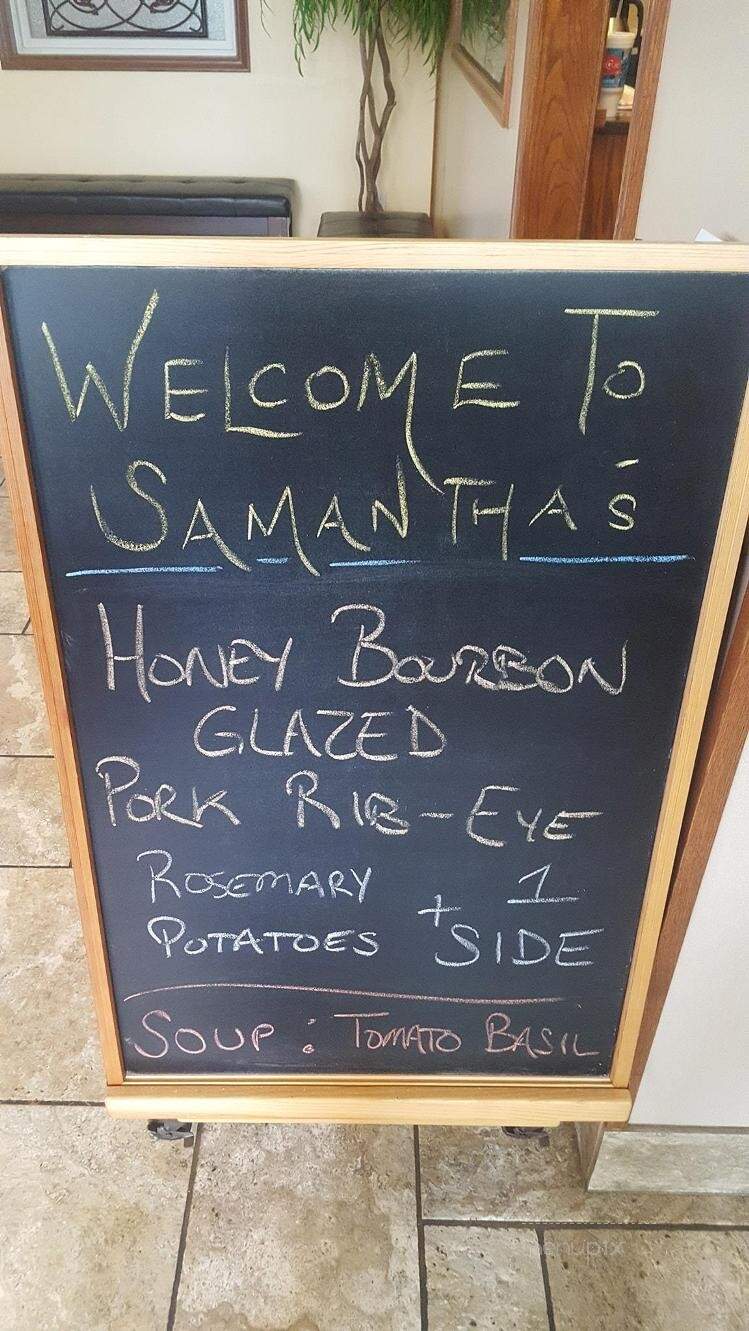 WELCOME TO
SAMANTHA'S
HONEY BOURBON
GLAZED
PORK RIB-EYE
ROSEMARY 1
POTATOES + SIDE
SOUP : TOMATO BASIL
menupix